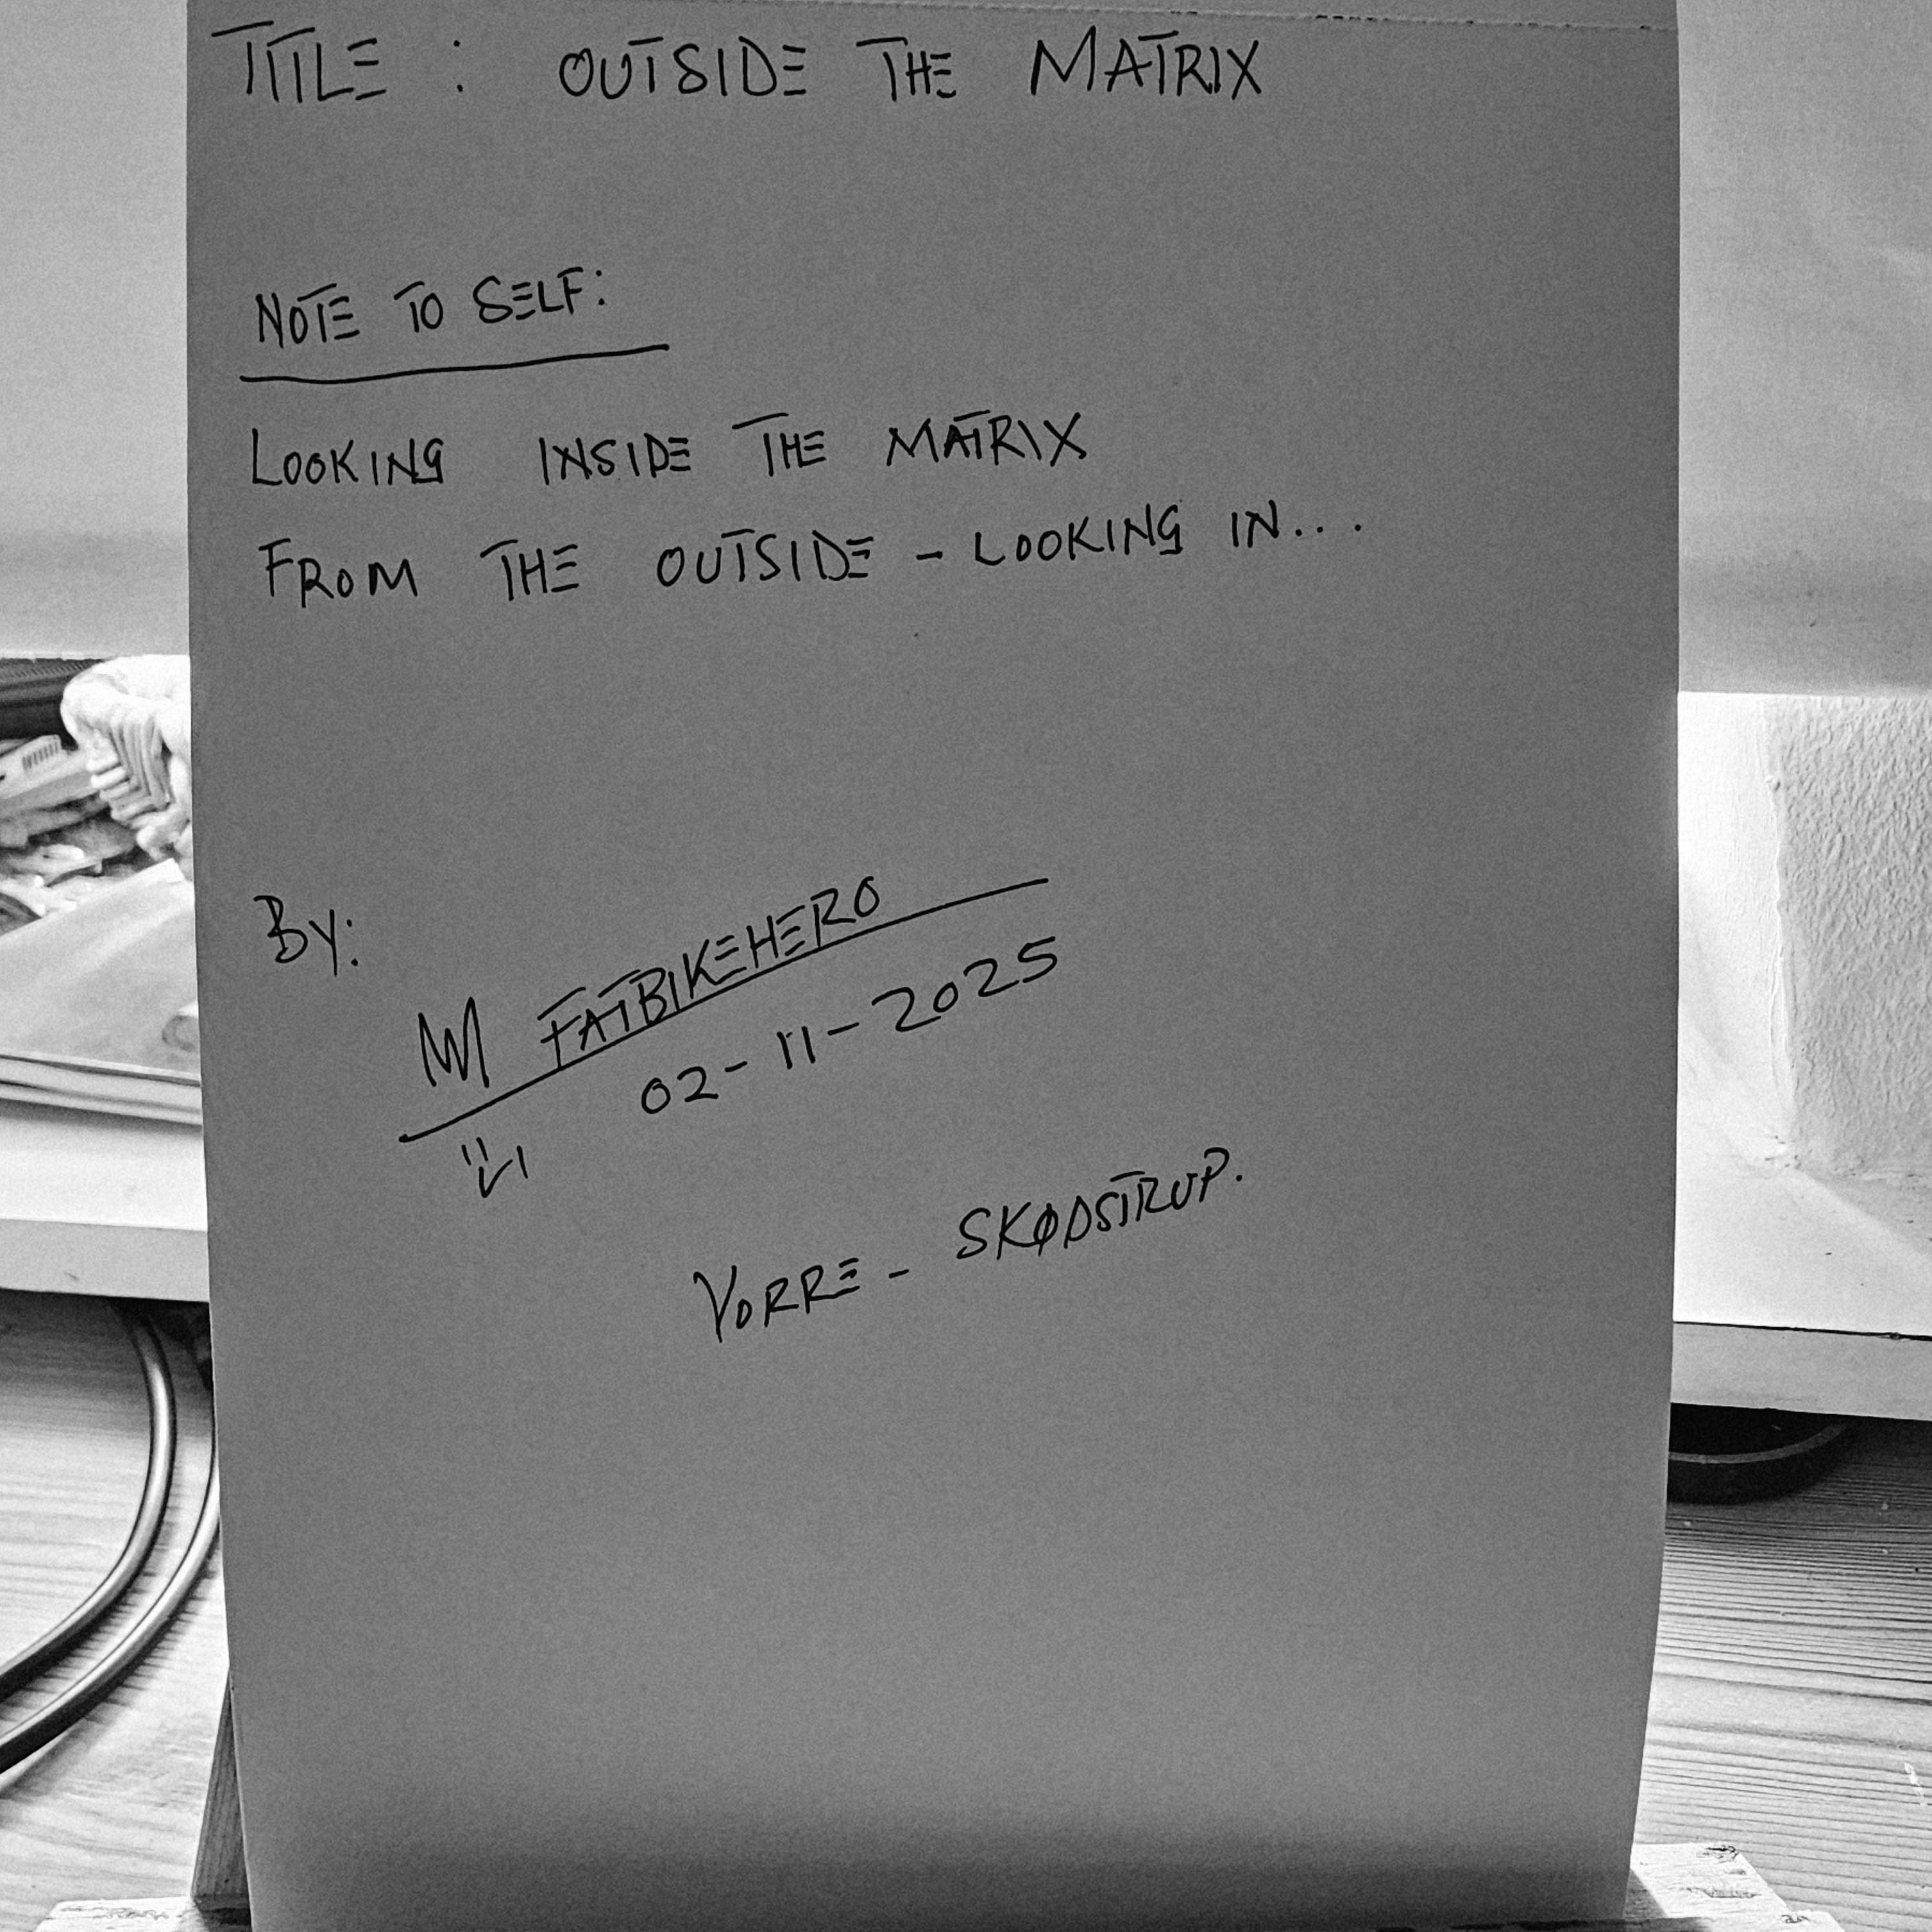 TITLE : OUTSIDE THE MATRIX
NOTE TO SELF:
LOOKING INSIDE THE MATRIX
FROM THE OUTSIDE - LOOKING IN...
By:
FATBIKEHERO
02-11-2025
VORRE - SKØDSTRUP.